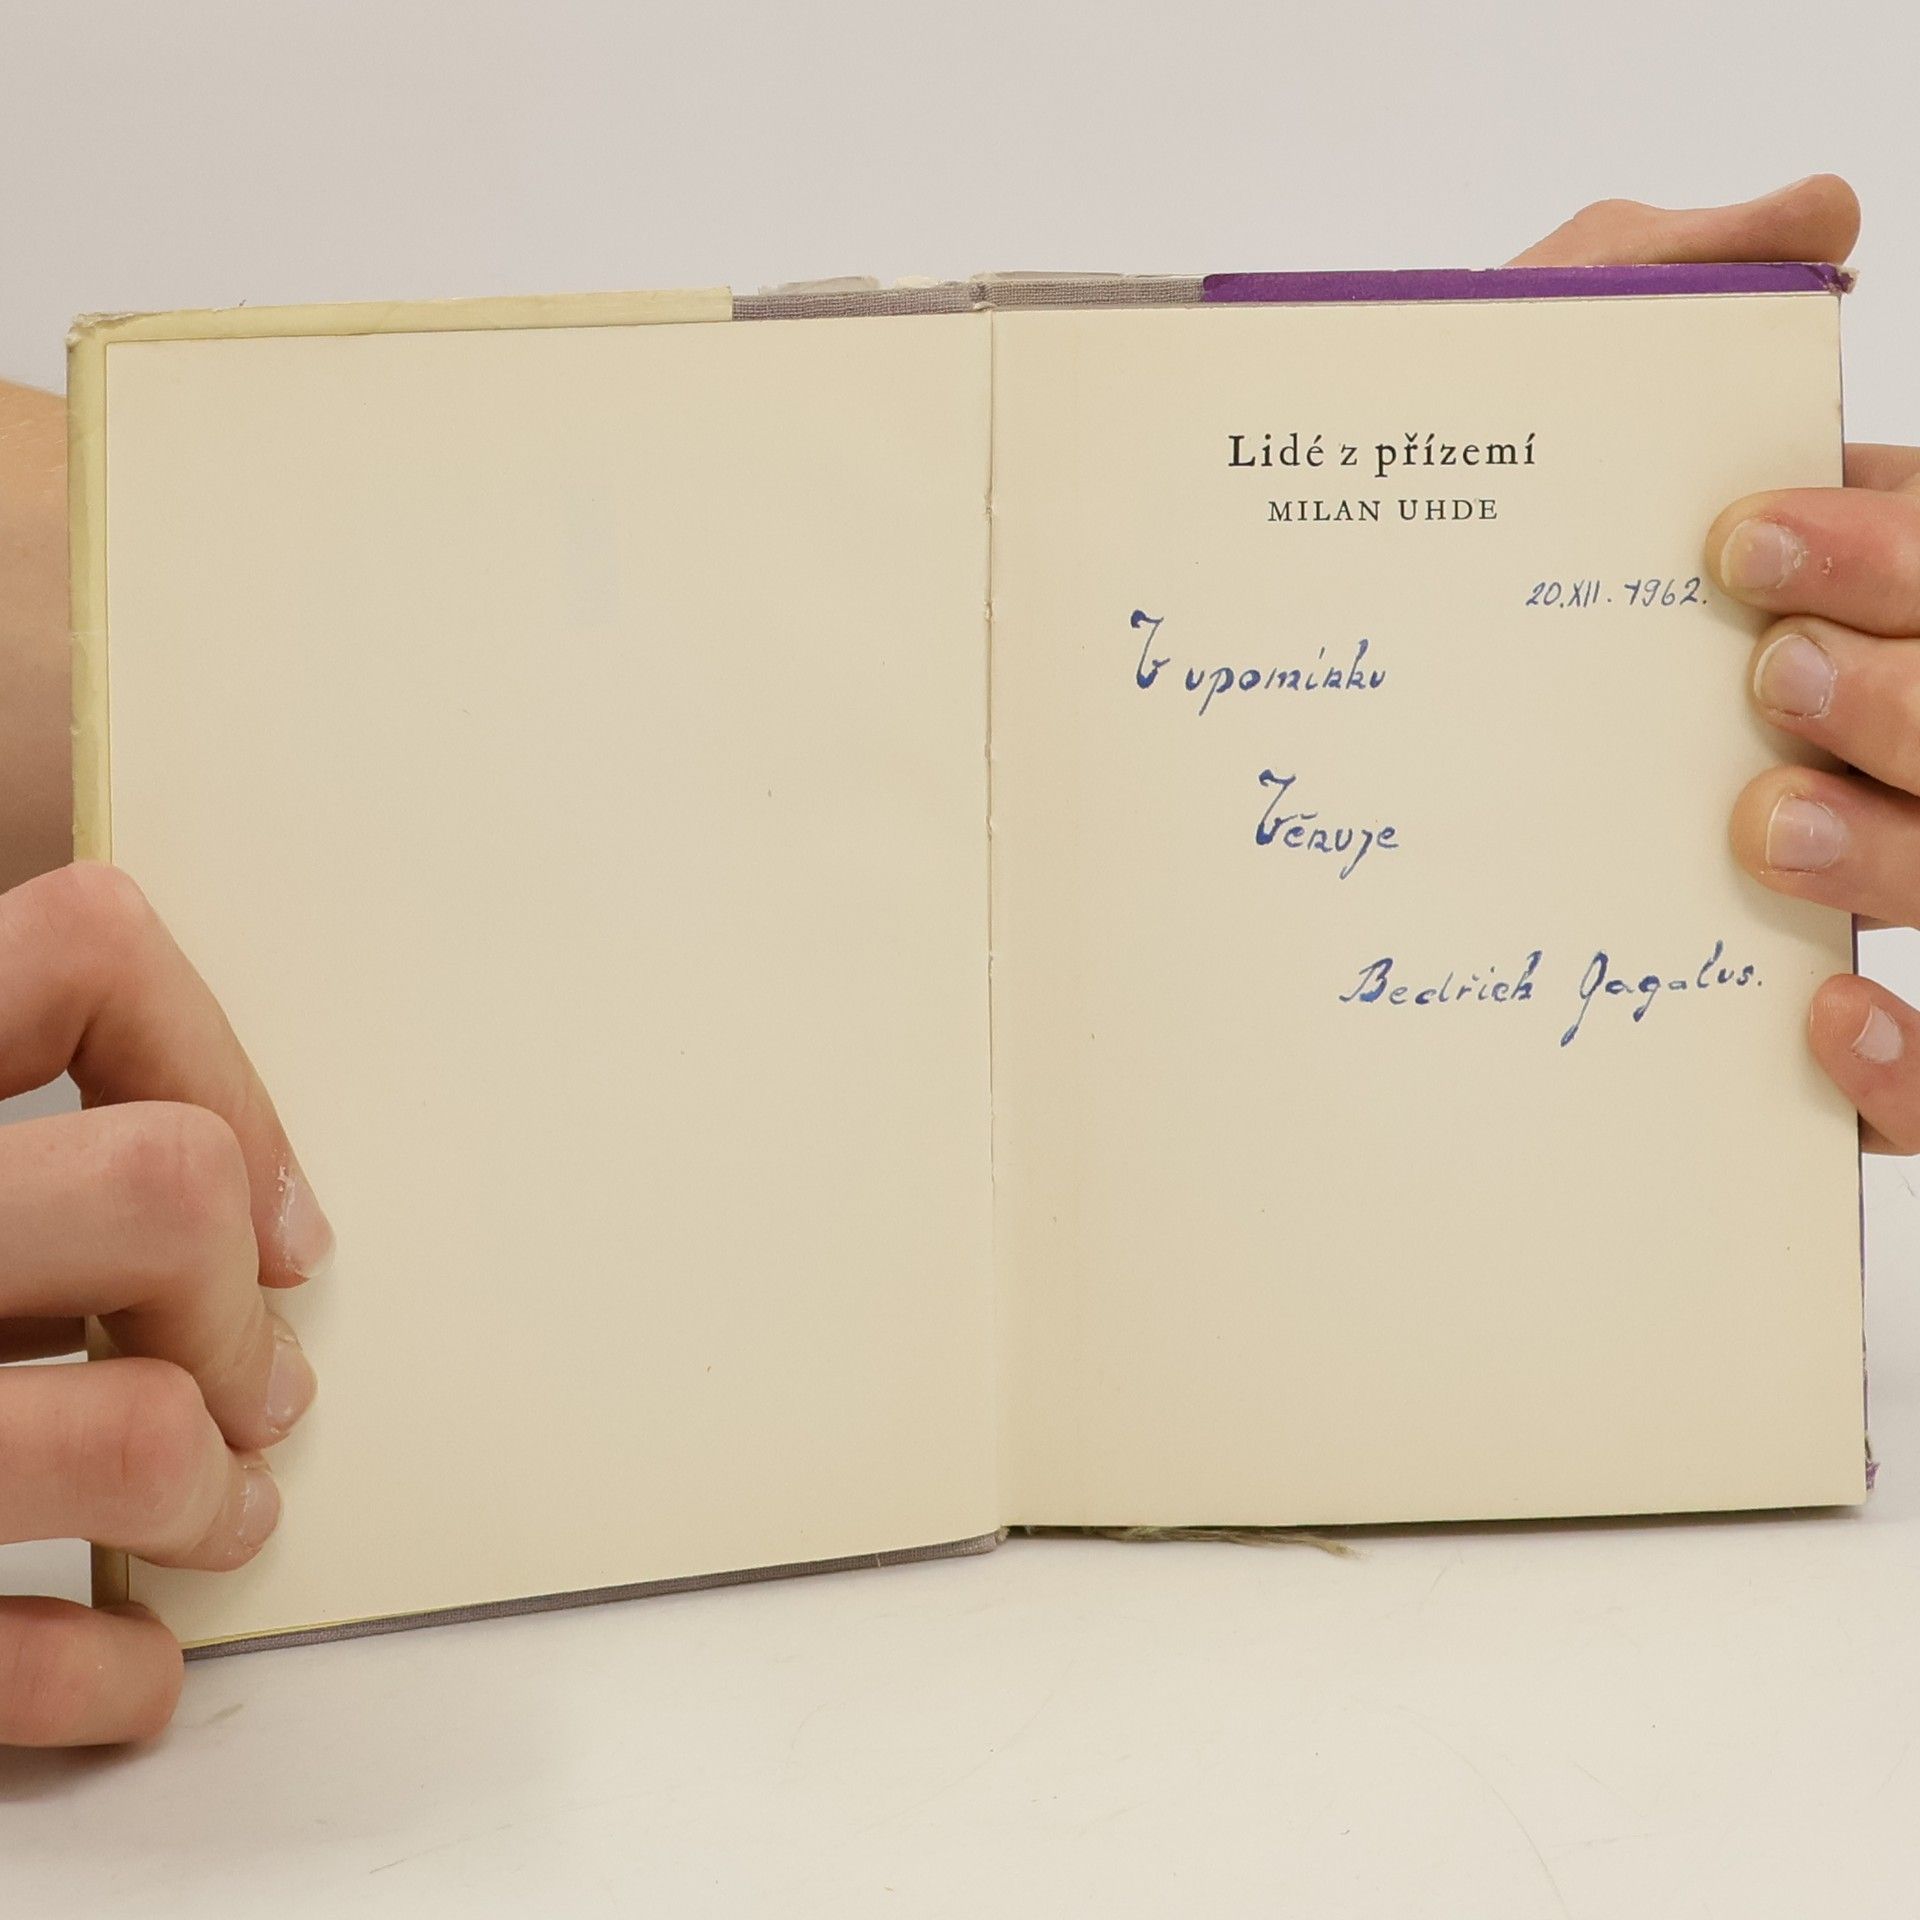 Lidé z přízemí
MILAN UHDE
20.XII. 1962.
V upomínku
Věnuje
Bedřich